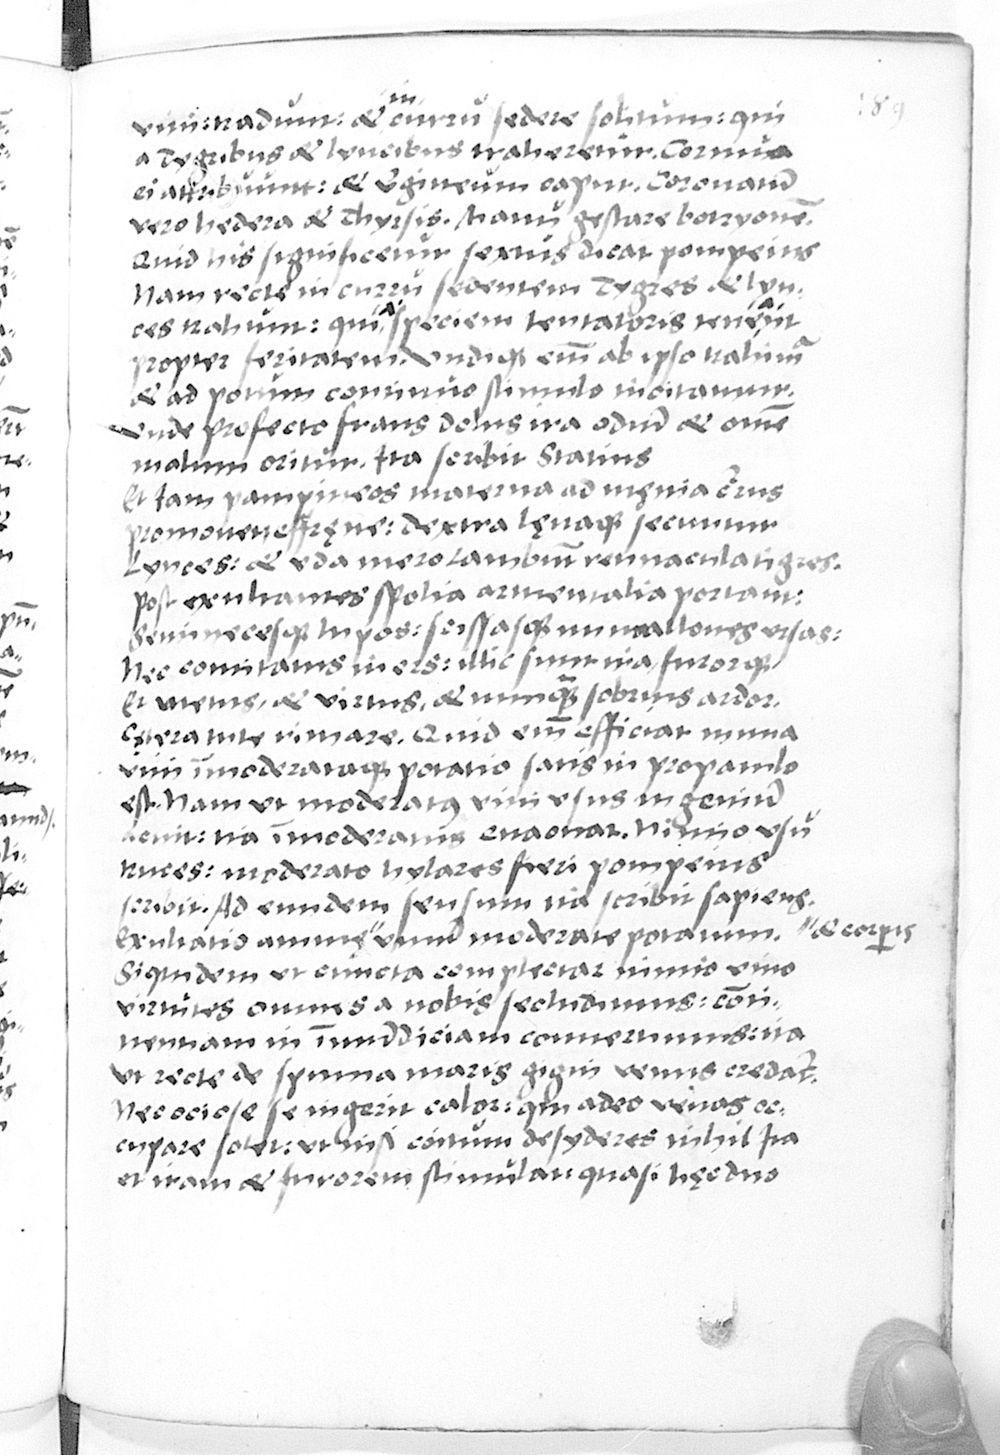 189
vini: tradunt: & in currū sedere solitum: qui
a Tygribus & lyncibus traheretur. Cornua
ei attribuunt: & virgineum caput. Coronatū
vero hedera & Thyrsis. Manu gestare botryonē.
Quid his significetur sextus dicat pompeius
Nam recte in currū sedentem Tygres & lyn-
ces trahunt: quia speciem tentatoris teneāt
propter feritatem. Undiq; em̄ ab ipso trahimr̄
& ad potum continuo stimulo incitamur.
unde profecto fraus dolus ira odiū & om̄e
malum oritur. Ita scribit Statius
Et Iam pampineos materna ad męnia c̄rus
promovet effręne: dextra lęvaq; secuntur
Lynces: & uda mero lambūt retinacula tigres.
post exultantes spolia armentalia portant:
Seminecesq; lupos: scissasq; mimallones ursas:
Nec comitatus iners: illic sunt ira, furorq;
Et metus, & virtus, & nunq̄; sobrius ardor.
Cętera tute rimare. Quid em̄ efficiat nimia
vini īmoderataq; potatio satis in propatulo
est. Nam ut moderatus vini usus ingeniū
acuit: ita īmoderatus enaonat. Nimio usū
truces: moderato hylares fieri pompeius
scribit. Ad eundem sensum ita scribit sapiens.
Exultatio animę" vinū moderate potatum. " & corꝑis
Siquidem ut cuncta complectar nimio vino
virtutes omnes a nobis secludimus: cōti-
nentiam in īmūdiciam convertimus: ita
ut recte de spuma maris gigni venus credat̄.
Nec ociose se ingerit calor: qui adeo venas oc-
cupare solet: ut nisi coitum desyderes nihil Ita
et iram & furorem stimulat: quasi hęc duo